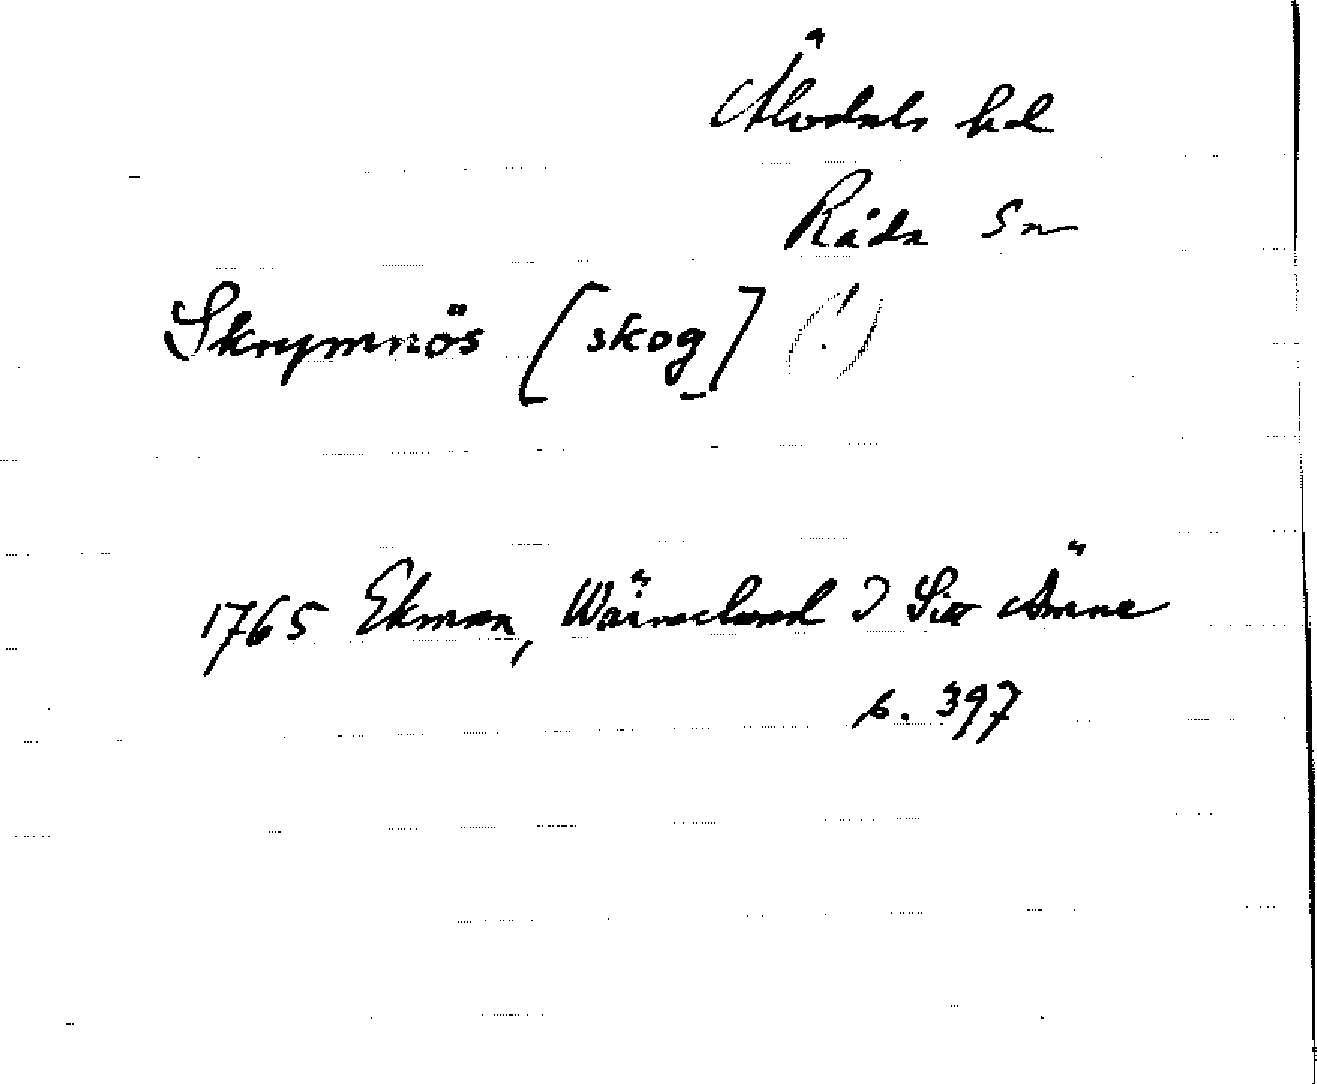 Älvdals hd
Råda Sn
Skrymnös [skog] (!)
1765 Ekman, Wärmeland I Sitt Ämne
s. 397